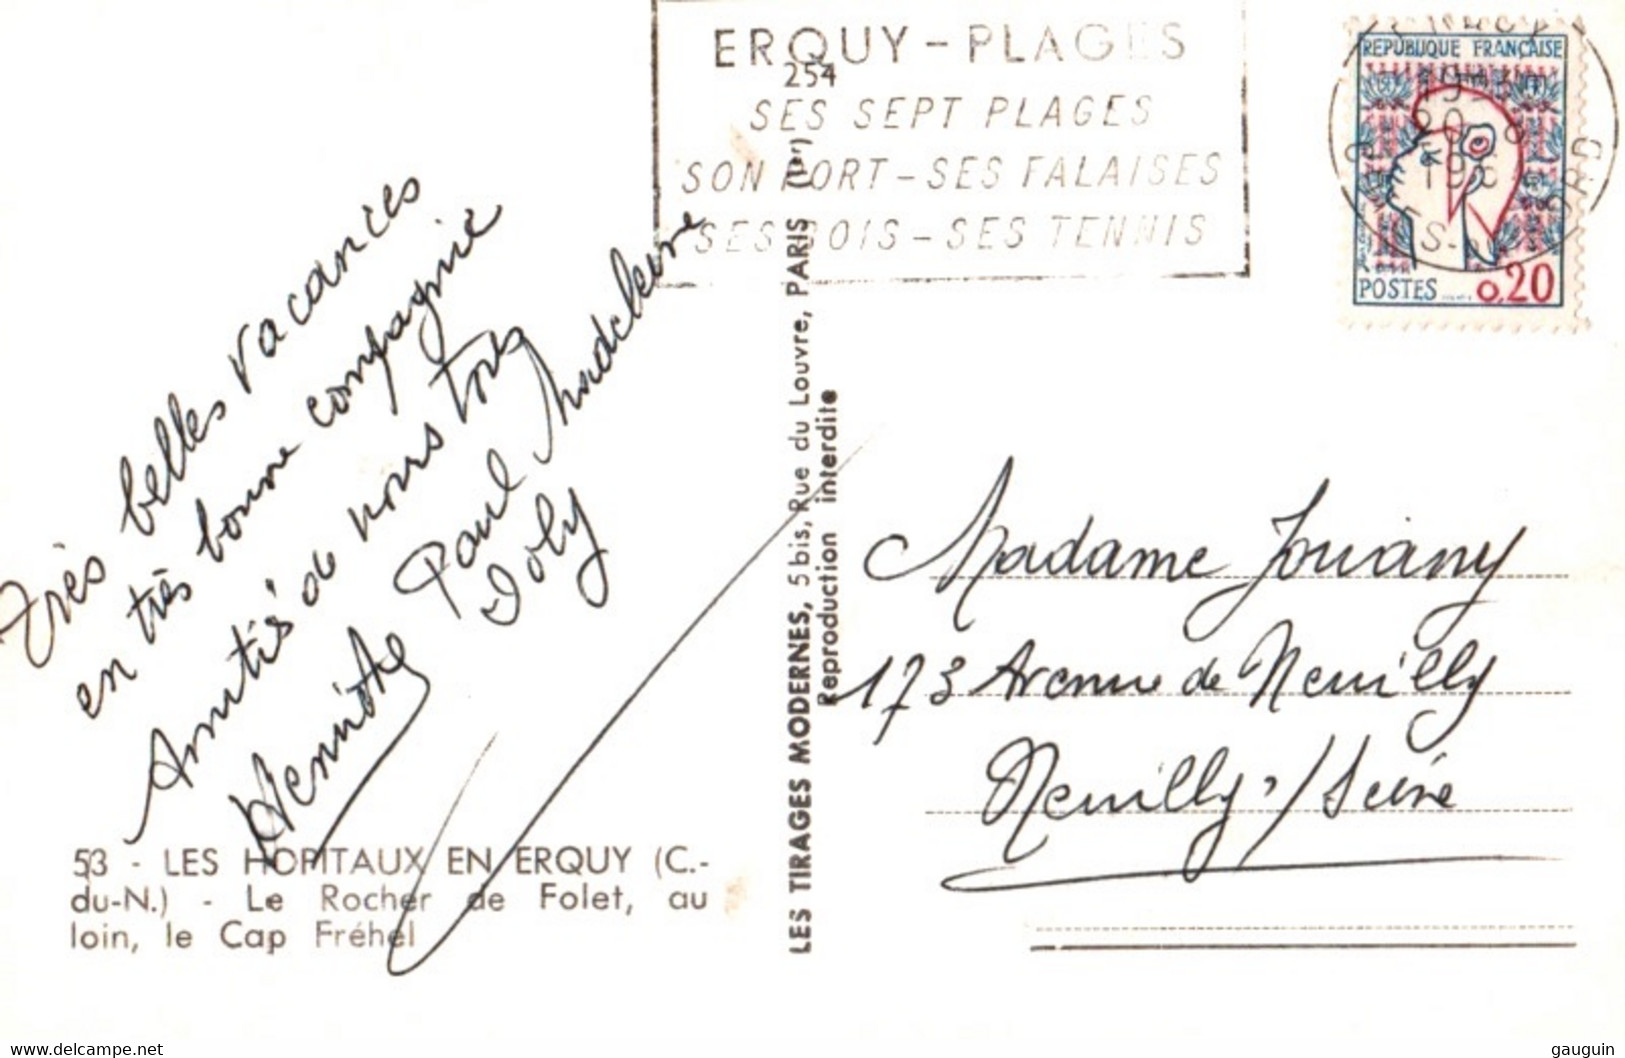 ERQUY - PLAGES
254
SES SEPT PLAGES
SON PORT - SES FALAISES
SES BOIS - SES TENNIS
REPUBLIQUE FRANÇAISE
POSTES 0,20
Très belles vacances
en très bonne compagnie
Amitiés de nous tous
Paul Madeleine
Doly
53 - LES HOPITAUX EN ERQUY (C.-
du-N.) - Le Rocher de Folet, au
loin, le Cap Fréhel
LES TIRAGES MODERNES, 5 bis, Rue du Louvre, PARIS (1er)
Reproduction interdite
Madame Jouany
173 Avenue de Neuilly
Neuilly s/Seine
www.delcampe.net
gauguin